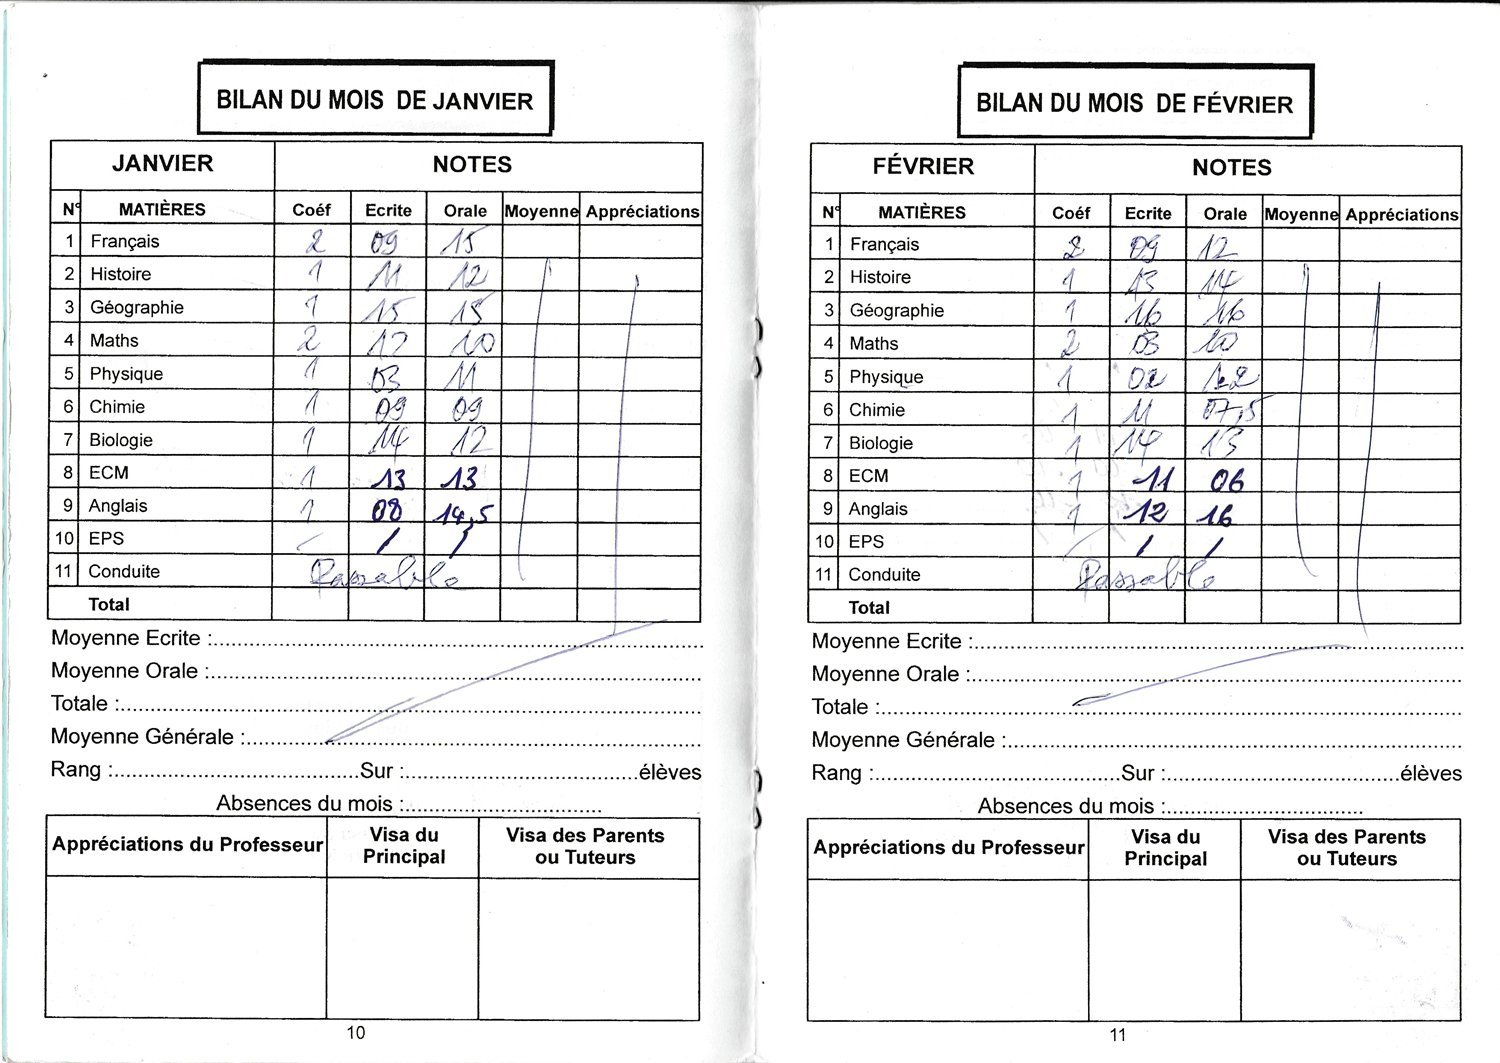 BILAN DU MOIS DE JANVIER
JANVIER NOTES
N° MATIÈRES Coéf Ecrite Orale Moyenne Appréciations
1 Français 2 09 15
2 Histoire 1 11 12
3 Géographie 1 15 15
4 Maths 2 12 10
5 Physique 1 03 11
6 Chimie 1 09 09
7 Biologie 1 14 12
8 ECM 1 13 13
9 Anglais 1 08 14,5
10 EPS / / /
11 Conduite Passable
Total
Moyenne Ecrite :
Moyenne Orale :
Totale :
Moyenne Générale :
Rang : Sur : élèves
Absences du mois :
Appréciations du Professeur Visa du Principal Visa des Parents ou Tuteurs
10
BILAN DU MOIS DE FÉVRIER
FÉVRIER NOTES
N° MATIÈRES Coéf Ecrite Orale Moyenne Appréciations
1 Français 2 09 12
2 Histoire 1 13 14
3 Géographie 1 16 16
4 Maths 2 03 10
5 Physique 1 02
6 Chimie 1 11 07,5
7 Biologie 1 14 13
8 ECM 1 11 06
9 Anglais 1 12 16
10 EPS / / /
11 Conduite Passable
Total
Moyenne Ecrite :
Moyenne Orale :
Totale :
Moyenne Générale :
Rang : Sur : élèves
Absences du mois :
Appréciations du Professeur Visa du Principal Visa des Parents ou Tuteurs
11